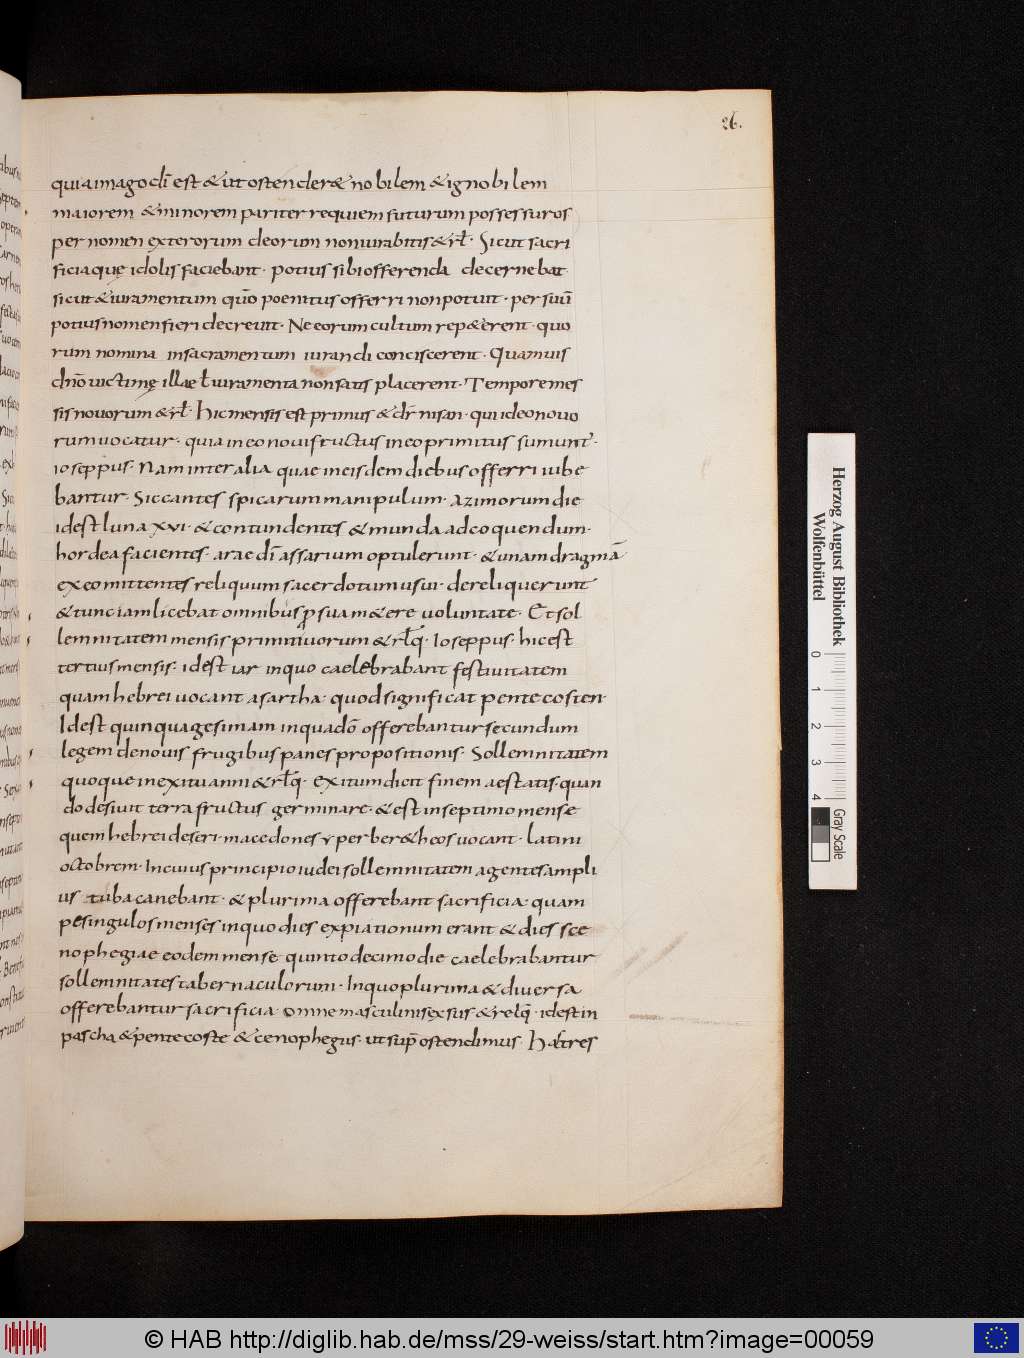 26.
quia imago dī est & ut ostender& nobilem & ignobilem
maiorem & minorem pariter requiem futurum possessuros
per nomen exterorum deorum non iurabitis & rł. Sicut sacri
ficia quę idolis faciebant. potius sibi offerenda decernebat
sicut & iuramentum quō poenitus offerri non potuit. per suū
potius nomen fieri decreuit. Ne eorum cultum rep&erent. quo
rum nomina in sacramentum iurandi conciscerent. Quamuis
dn̄o uictimę illae ł iuramenta non satis placerent. Tempore mes
sis nouorum & rł. Hic mensis est primus & dr̄ nisan. qui ideo nouo
rum uocatur. quia in eo noui fructus in eo primitus sumunt.
ioseppus. Nam inter alia quae in eisdem diebus offerri iube
bantur. Siccantes spicarum manipulum. azimorum die
id est luna xvi. & contundentes & munda ad coquendum.
hordea facientes. arae dī assarium optulerunt. & unam dragmā
ex eo mittentes reliquum sacerdotum usui. dereliquerunt
& tunc iam licebat omnibus p suam &ere uoluntate. Et sol
lemnitatem mensis primitiuorum & rłq̄. Ioseppus. hic est
tertius mensis. id est iar in quo caelebrabant festiuitatem
quam hebrei uocant asartha. quod significat pentecosten.
Idest quinquagesimam in qua dō offerebantur secundum
legem de nouis frugibus panes propositionis. Sollemnitatem
quoque in exitu anni & rłq. Exitum dicit finem aestatis. quan
do desiuit terra fructus germinare. & est in septimo mense
quem hebrei deseri. macedones yperber&heos uocant. latini
octobrem. In cuius principio iudei sollemnitatem agentes ampli
us tuba canebant. & plurima offerebant sacrificia. quam
per singulos menses in quo dies expiationum erant & dies sce
nophegiae eodem mense quinto decimo die caelebrabantur
sollemnitates tabernaculorum. In quo plurima & diuersa
offerebantur sacrificia. Omne masculinis ex suis & relq̄. id est in
pascha & pentecoste & cenophegiis. ut sup̄ ostendimus. Hae tres
Herzog August Bibliothek
Wolfenbüttel
0 1 2 3 4
Gray Scale
© HAB http://diglib.hab.de/mss/29-weiss/start.htm?image=00059